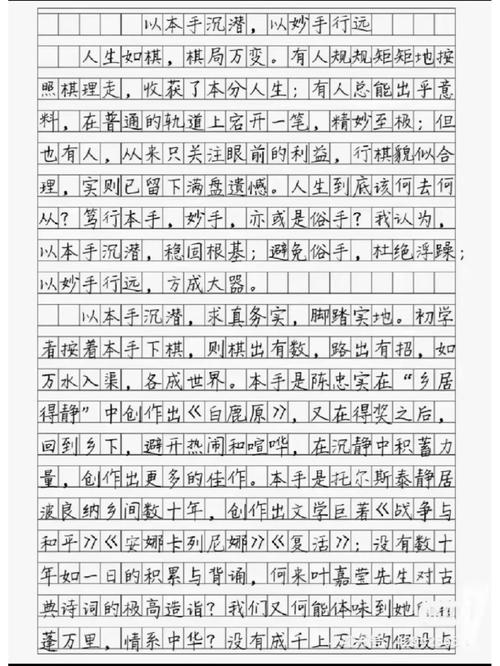 以本手沉潜，以妙手行远
人生如棋，棋局万变。有人规规矩矩地按
照棋理走，收获了本分人生；有人总能出乎意
料，在普通的轨道上宕开一笔，精妙至极；但
也有人，从来只关注眼前的利益，行棋貌似合
理，实则已留下满盘遗憾。人生到底该何去何
从？笃行本手，妙手，亦或是俗手？我认为，
以本手沉潜，稳固根基；避免俗手，杜绝浮躁；
以妙手行远，方成大器。
以本手沉潜，求真务实，脚踏实地。初学
者按着本手下棋，则棋出有数，路出有招，如
万水入渠，各成世界。本手是陈忠实在“乡居
得静”中创作出《白鹿原》，又在得奖之后，
回到乡下，避开热闹和喧哗，在沉静中积蓄力
量，创作出更多的佳作。本手是托尔斯泰静居
波良纳乡间数十年，创作出文学巨著《战争与
和平》《安娜卡列尼娜》《复活》；没有数十
年如一日的积累与背诵，何来叶嘉莹先生对古
典诗词的极高造诣？我们又何能体味到她
蓬万里，情系中华？没有成千上万次的假设与